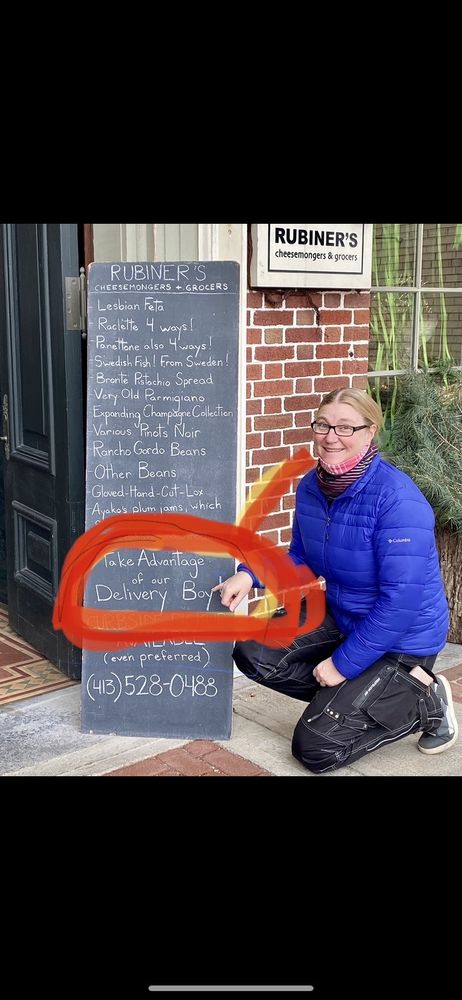 RUBINER'S
CHEESEMONGERS + GROCERS
Lesbian Feta
Raclette 4 ways!
Panettone also 4 ways!
Swedish Fish! From Sweden!
Bronte Pistachio Spread
Very Old Parmigiano
Expanding Champagne Collection
Various Pinots Noir
Rancho Gordo Beans
Other Beans
Gloved-Hand-Cut-Lox
Ayako's plum jams, which
Take Advantage
of our
Delivery Boy!
CURBSIDE
AVAILABLE
(even preferred)
(413) 528-0488
RUBINER'S
cheesemongers & grocers
Columbia